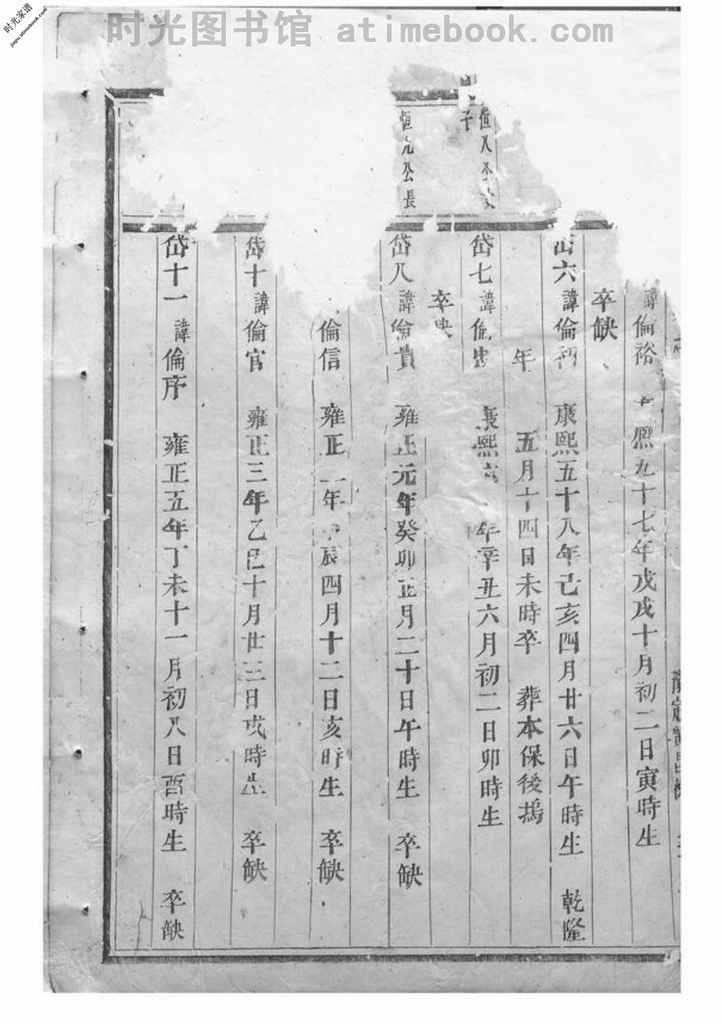 时光图书馆 atimebook.com
时光家谱
諱倫裕 熙五十七年戊戌十月初二日寅時生
卒缺
岱六諱倫 康熙五十八年己亥四月廿六日午時生 乾隆
年 五月十四日未時卒 葬本保後塢
恒 公
子
岱七諱倫 康熙 年辛丑六月初二日卯時生
卒缺
恒 公長
岱八諱倫貴 雍正元年癸卯正月二十日午時生 卒缺
倫信 雍正 年 辰四月十二日亥時生 卒缺
岱十諱倫官 雍正三年乙巳十月廿三日戌時生 卒缺
岱十一諱倫序 雍正五年丁未十一月初八日酉時生 卒缺